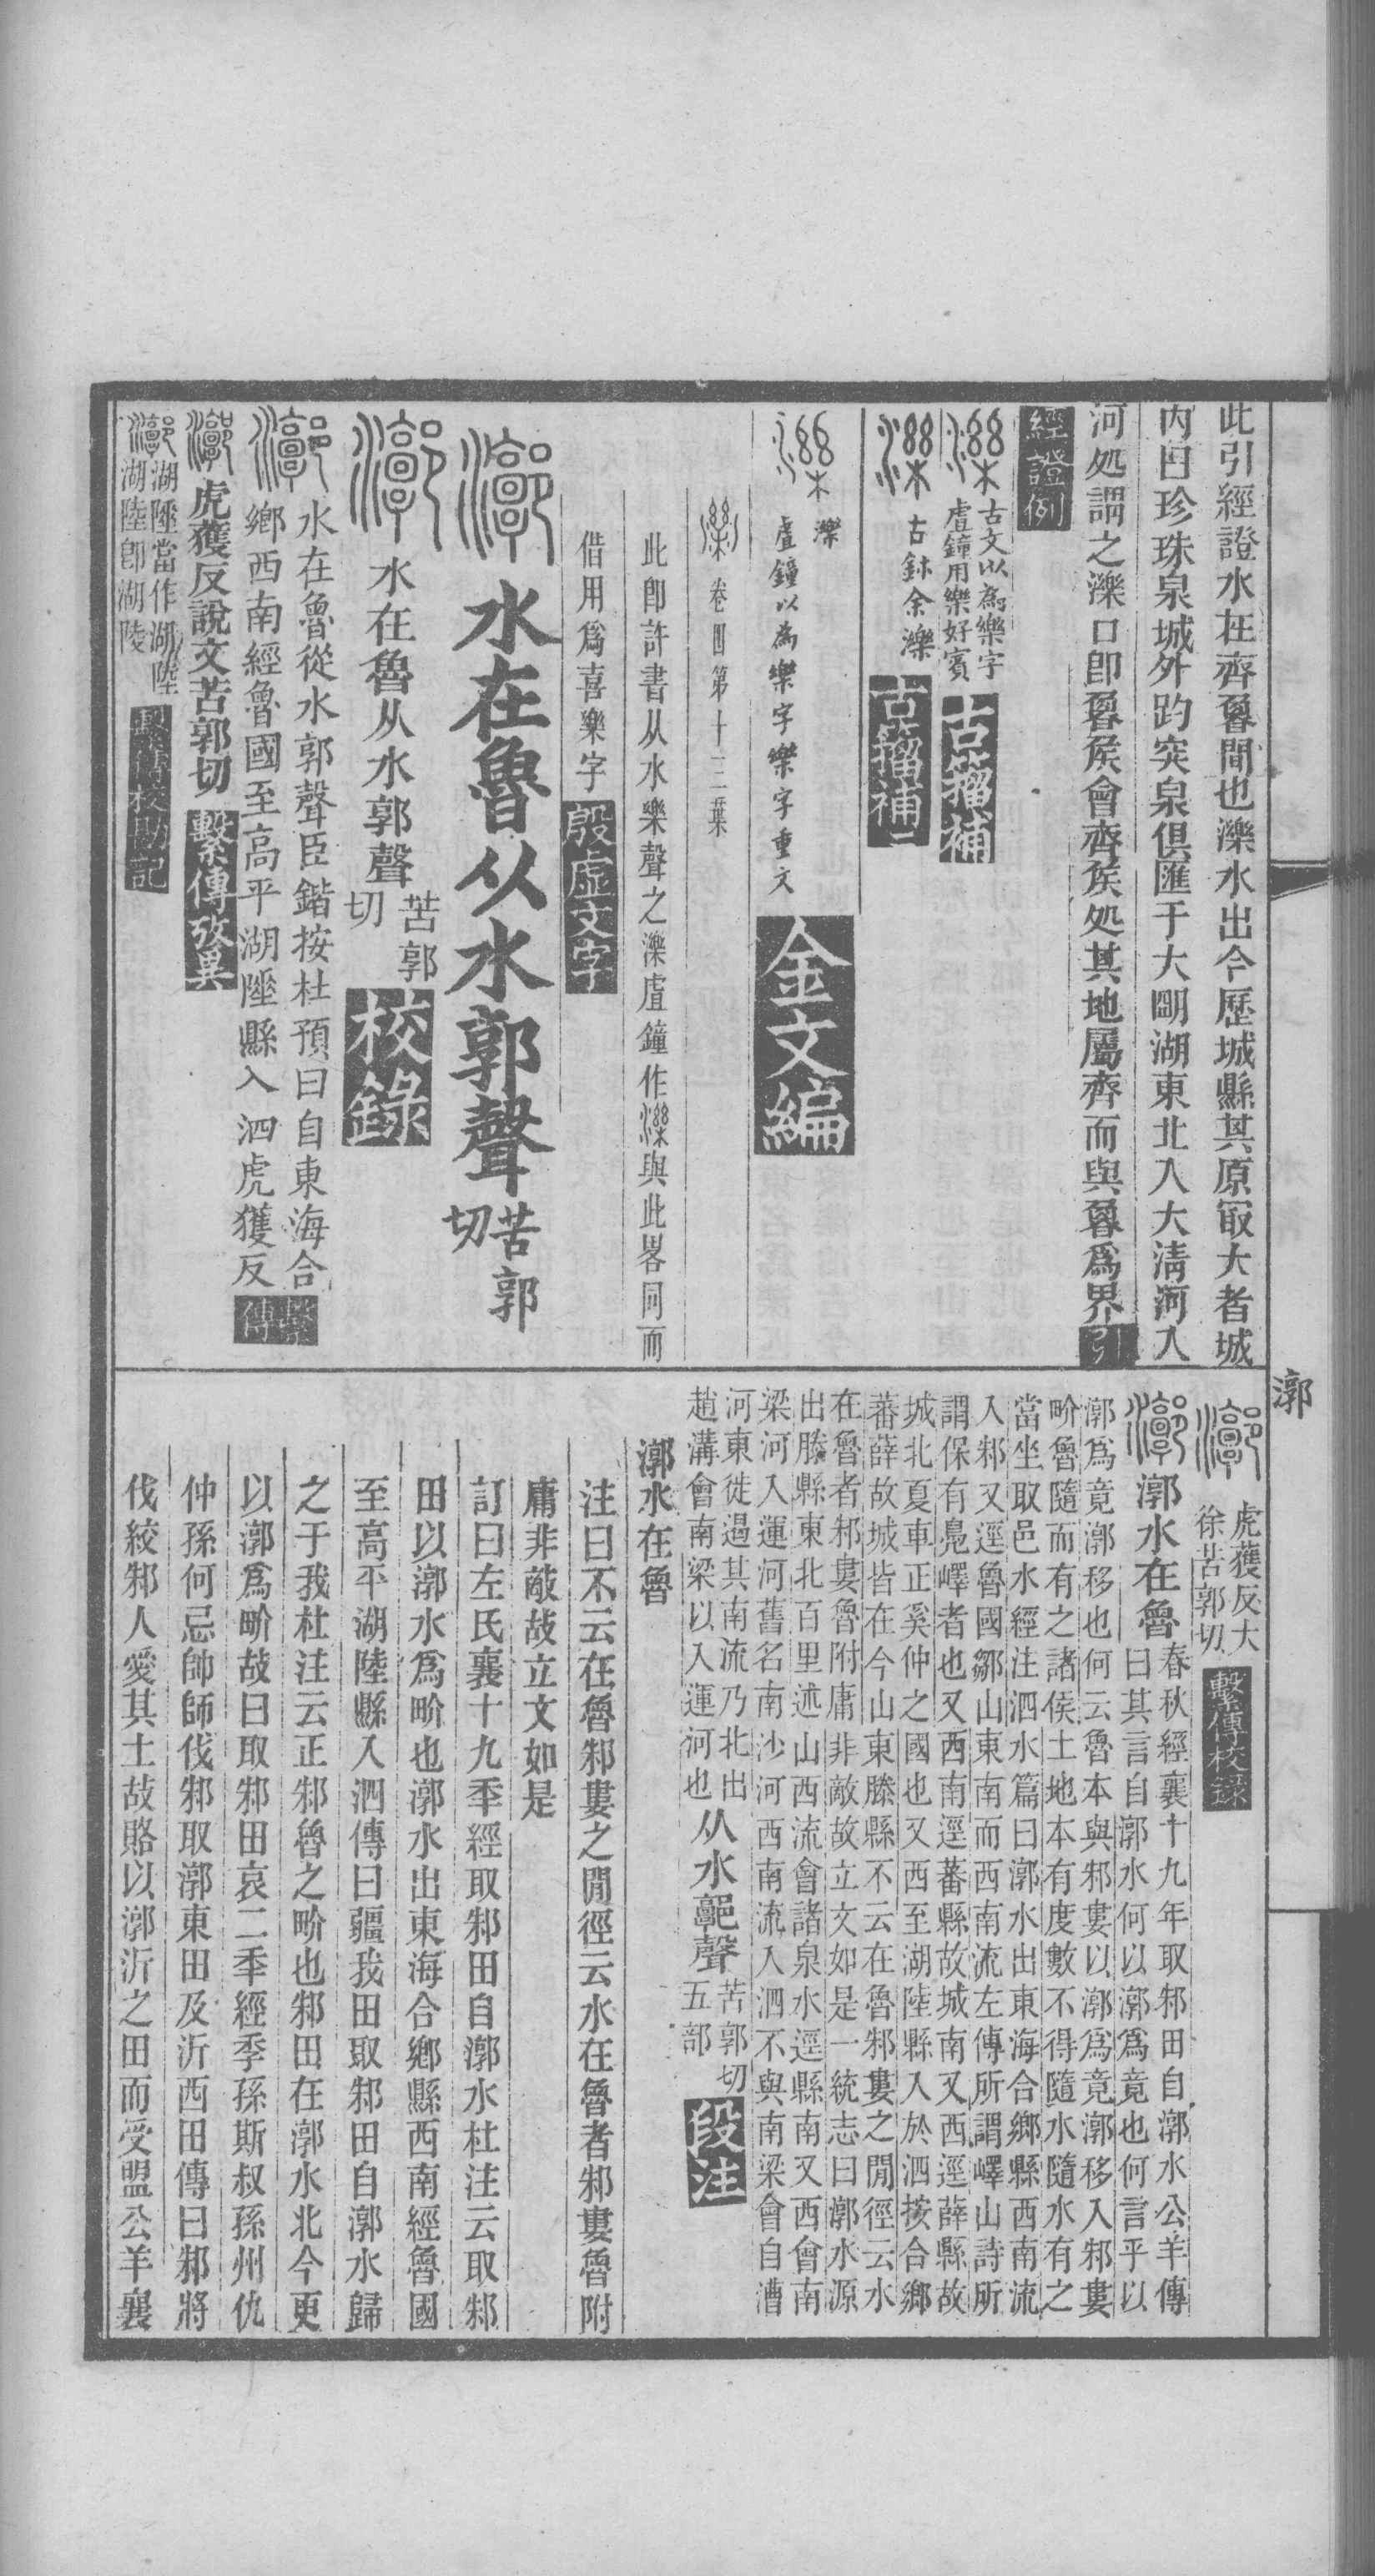 此引經證水在齊魯間也濼水出今歷城縣其原㝡大者城
內曰珍珠泉城外趵突泉俱匯于大明湖東北入大清河入
河処謂之濼口即魯矦會齊矦処其地屬齊而與魯爲界引
經證例
古文以爲樂字
虘鐘用樂好賓
古籀補
古鉨余濼
古籀補二
濼
虘鐘以為樂字樂字重文
金文編
卷四第十三葉
此即許書从水樂聲之濼虘鐘作濼與此畧同而
借用爲喜樂字殷虛文字
水在魯从水郭聲
苦郭
切
水在魯从水郭聲
苦郭
切
校錄
水在魯從水郭聲臣鍇按杜預曰自東海合
鄉西南經魯國至高平湖陸縣入泗虎獲反
繫傳
虎獲反說文苦郭切繫傳攷異
湖陸當作湖陸
湖陸卽湖陵
繫傳校勘記
漷
虎蒦反大
徐苦郭切
繫傳校錄
漷水在魯
春秋經襄十九年取邾田自漷水公羊傳
曰其言自漷水何以漷爲竟也何言乎以
漷爲竟漷移也何云魯本與邾婁以漷爲竟漷移入邾婁
畍魯隨而有之諸侯土地本有度數不得隨水隨水有之
當坐取邑水經注泗水篇曰漷水出東海合鄉縣西南流
入邾又逕魯國鄒山東南而西南流左傳所謂嶧山詩所
謂保有鳧嶧者也又西南逕蕃縣故城南又西逕薛縣故
城北夏車正奚仲之國也又西至湖陸縣入於泗按合鄉
蕃薛故城皆在今山東滕縣不云在魯邾婁之閒徑云水
在魯者邾婁魯附庸非敵故立文如是一統志曰漷水源
出滕縣東北百里述山西流會諸泉水逕縣南又西會南
梁河入運河舊名南沙河西南流入泗不與南梁會自漕
河東徙遏其南流乃北出
趙溝會南梁以入運河也
从水𩫏聲
苦郭切
五部
段注
漷水在魯
注曰不云在魯邾婁之閒徑云水在魯者邾婁魯附
庸非敵故立文如是
訂曰左氏襄十九秊經取邾田自漷水杜注云取邾
田以漷水爲畍也漷水出東海合鄉縣西南經魯國
至高平湖陸縣入泗傳曰疆我田取邾田自漷水歸
之于我杜注云正邾魯之畍也邾田在漷水北今更
以漷爲畍故曰取邾田哀二秊經季孫斯叔孫州仇
仲孫何忌帥師伐邾取漷東田及沂西田傳曰邾將
伐絞邾人愛其土故賂以漷沂之田而受盟公羊襄